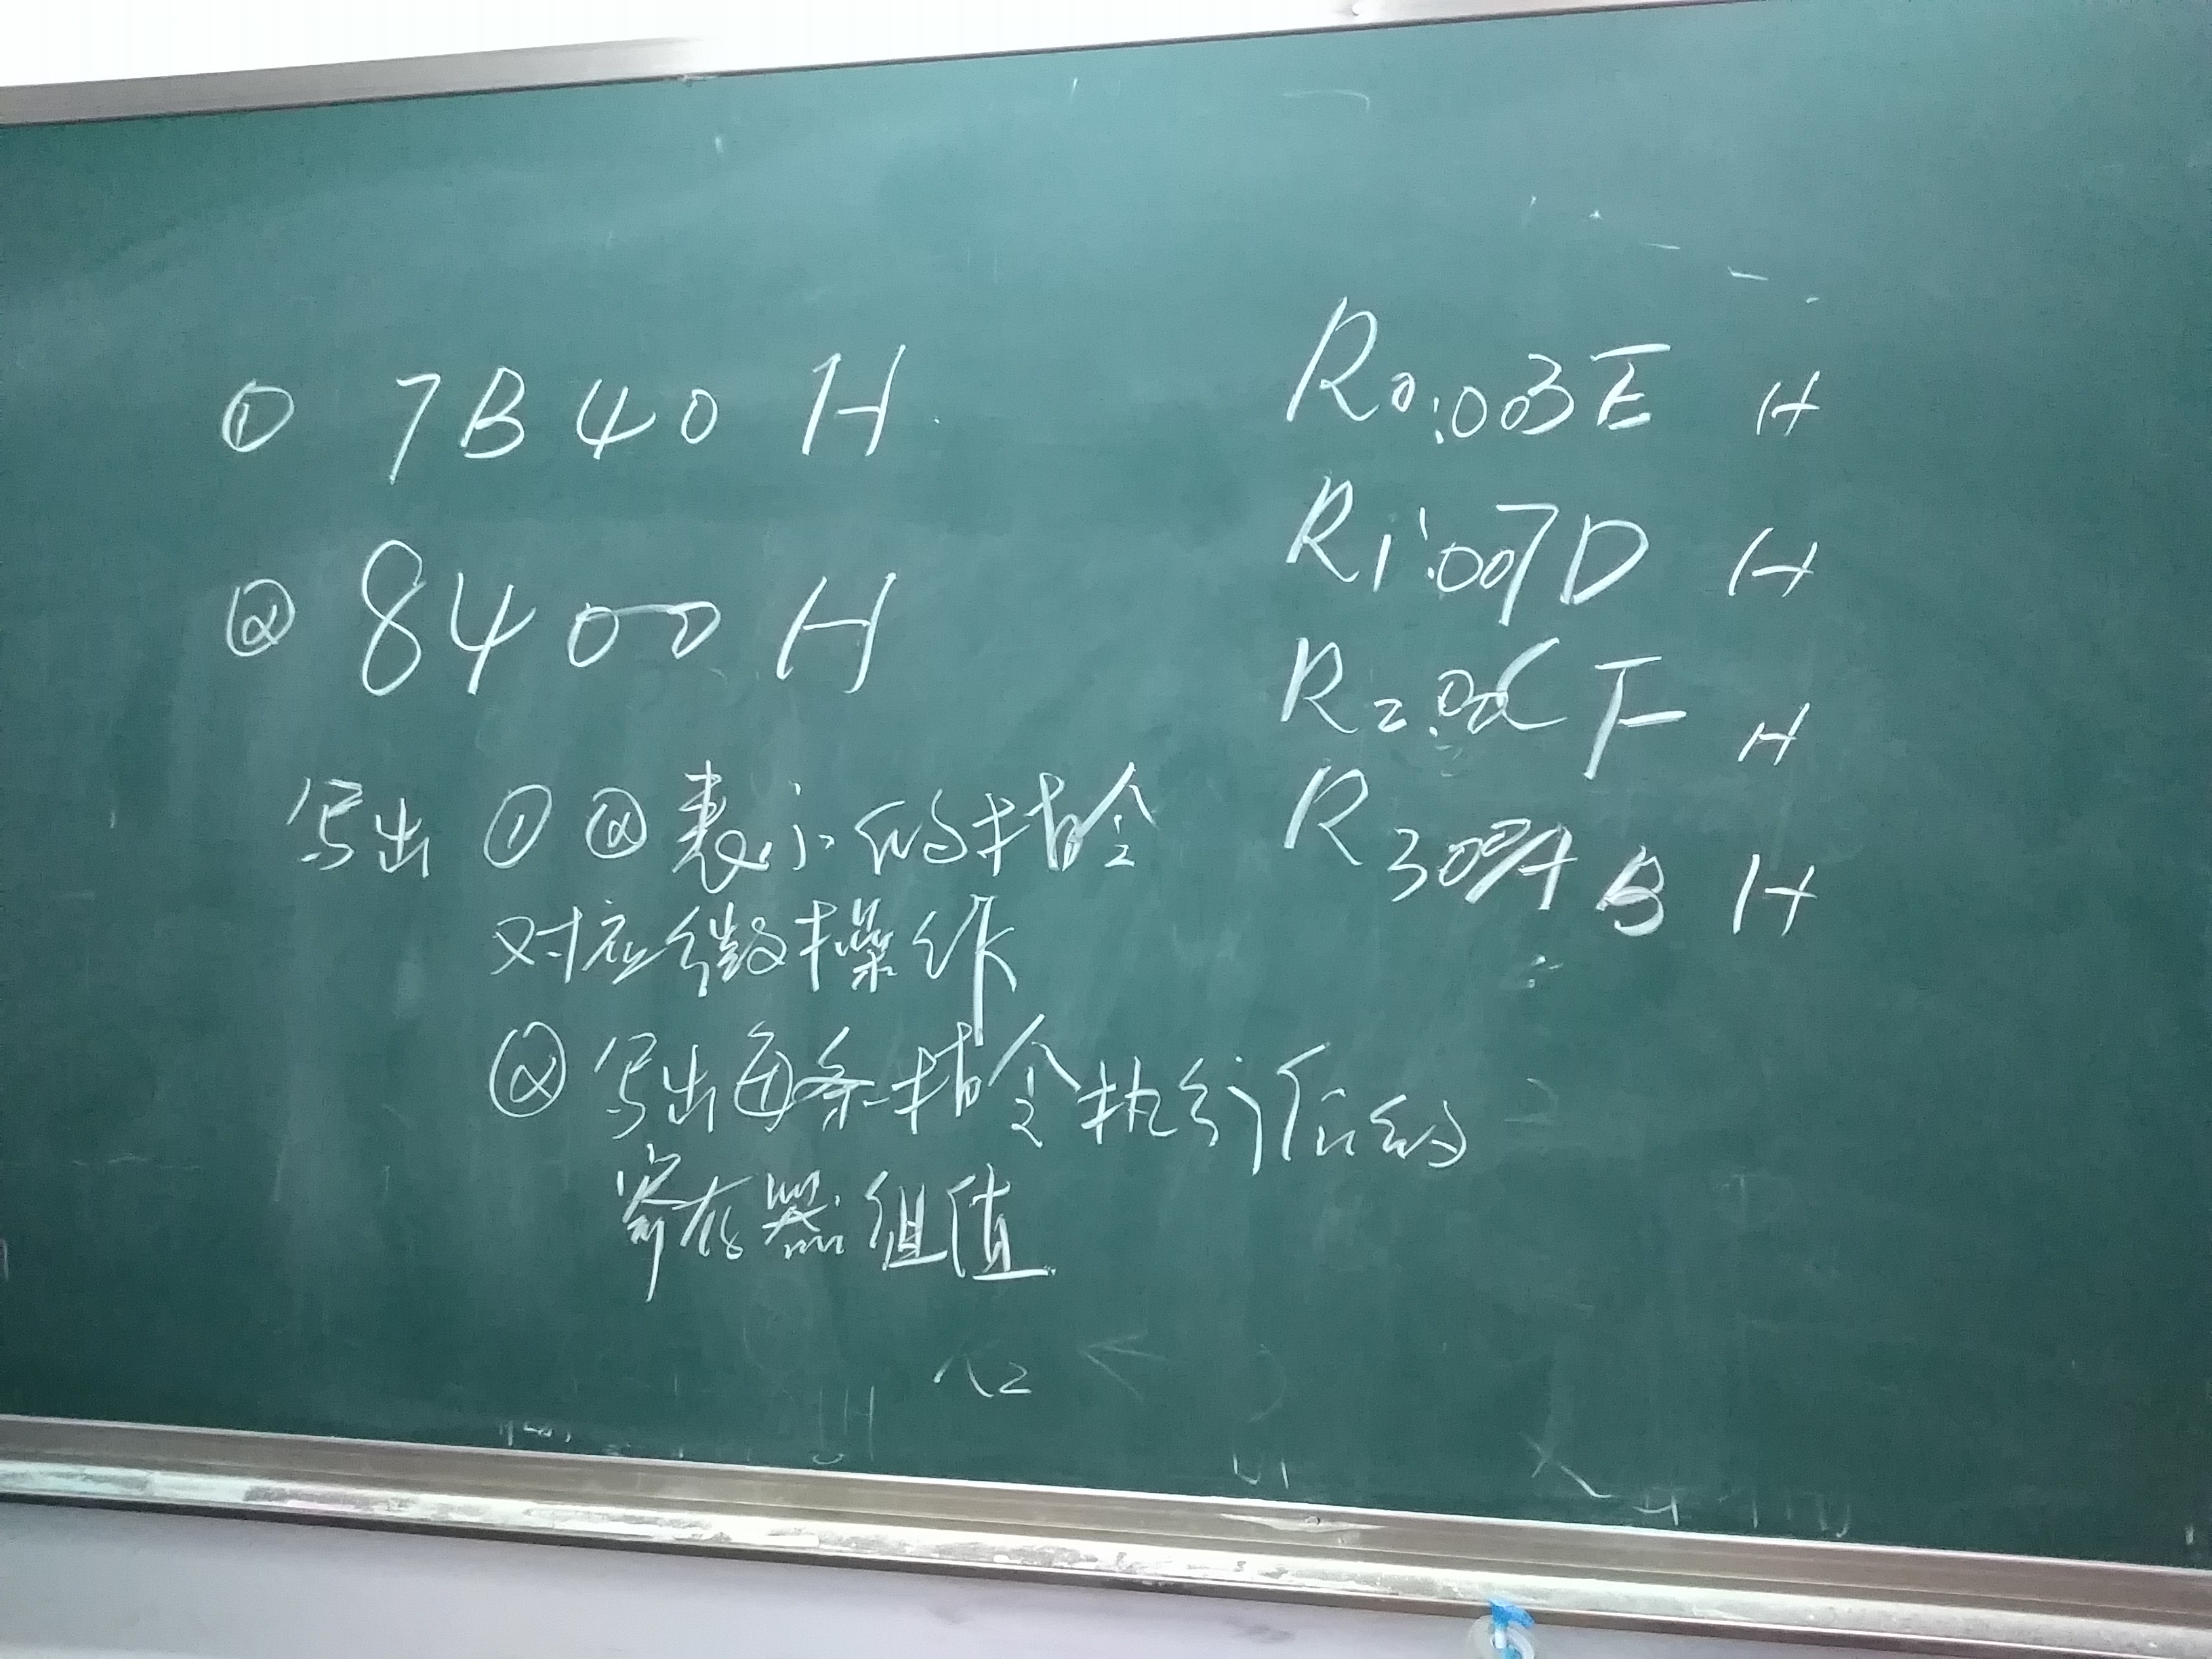 ① 7B40 H
② 8400 H
写出 ① ② 表示的指令
对应微操作
② 写出每条指令执行后的
寄存器组值
R0:003E H
R1:007D H
R2:00CF H
R3 00AB H